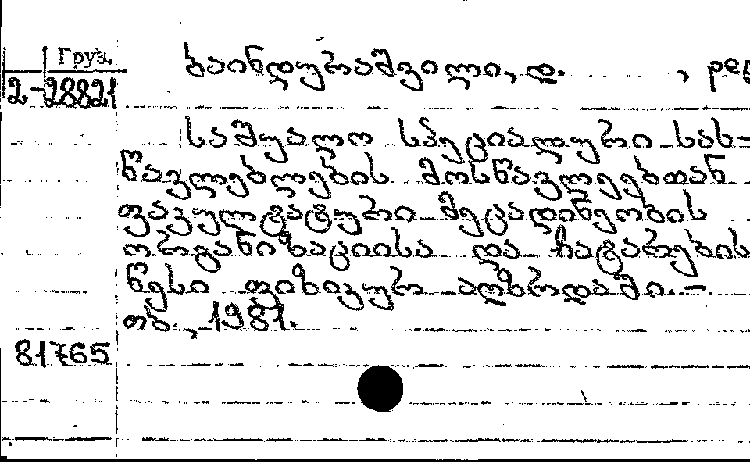 Груз.
2-28821
ბაინდურაშვილი, დ. , ред
საშუალო სპეციალური სას-
წავლებლების მოსწავლეებთან
ფაკულტატური მეცადინეობის
ორგანიზაციისა და ჩატარების
წესი ფიზიკურ აღზრდაში.-
თბ., 1981.
81765